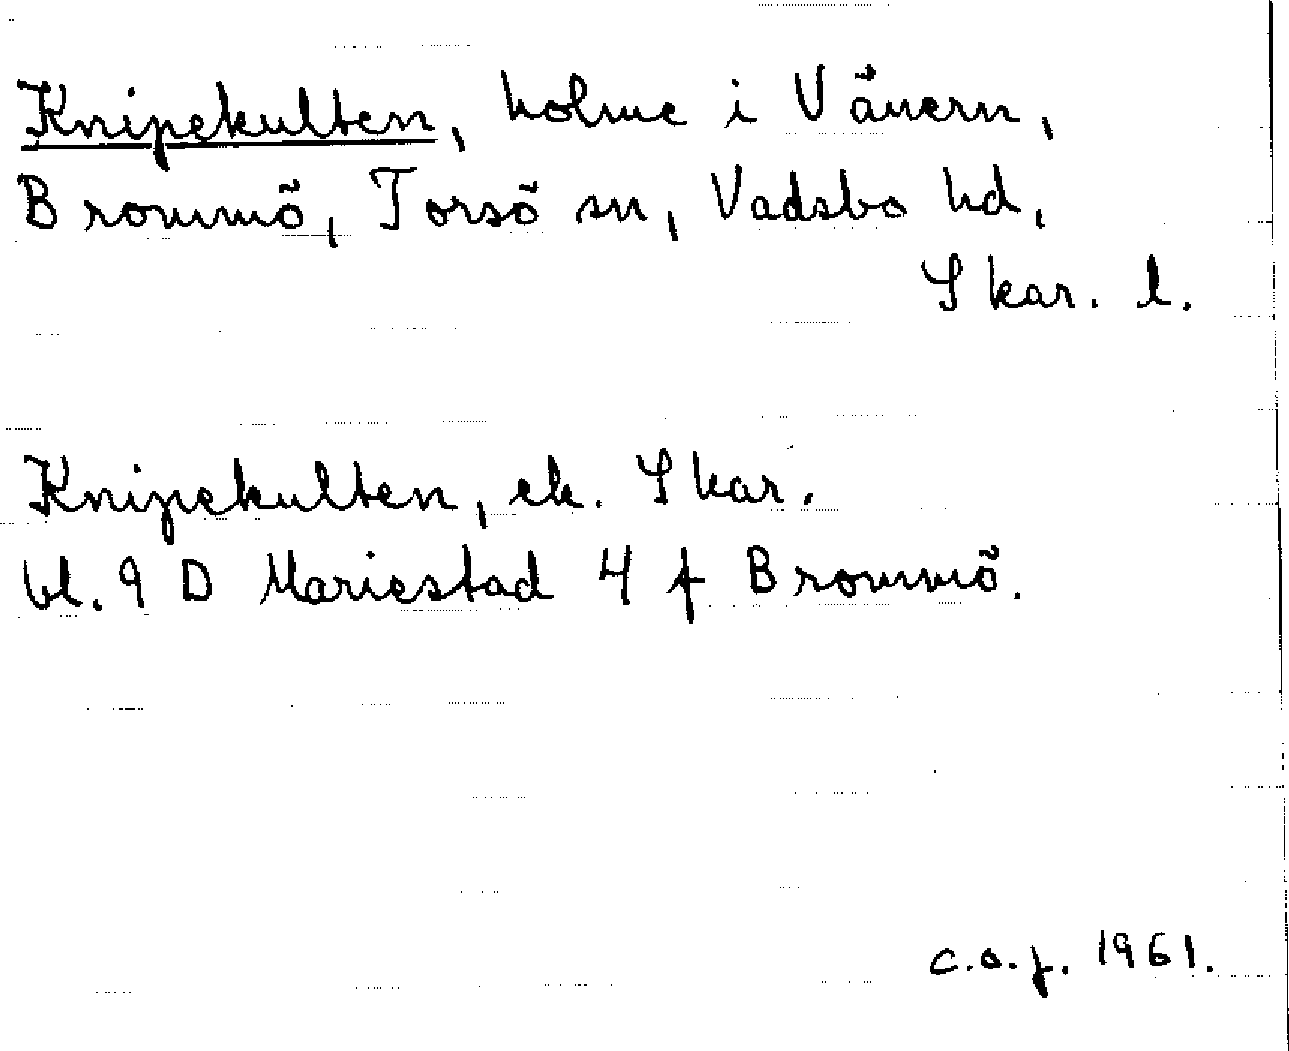 Knipekulten, holme i Vänern,
Brommö, Torsö sn, Vadsbo hd,
Skar. l.
Knipekulten, ek. Skar.
bl. 9 D Mariestad 4 f Brommö.
c.o.f. 1961.